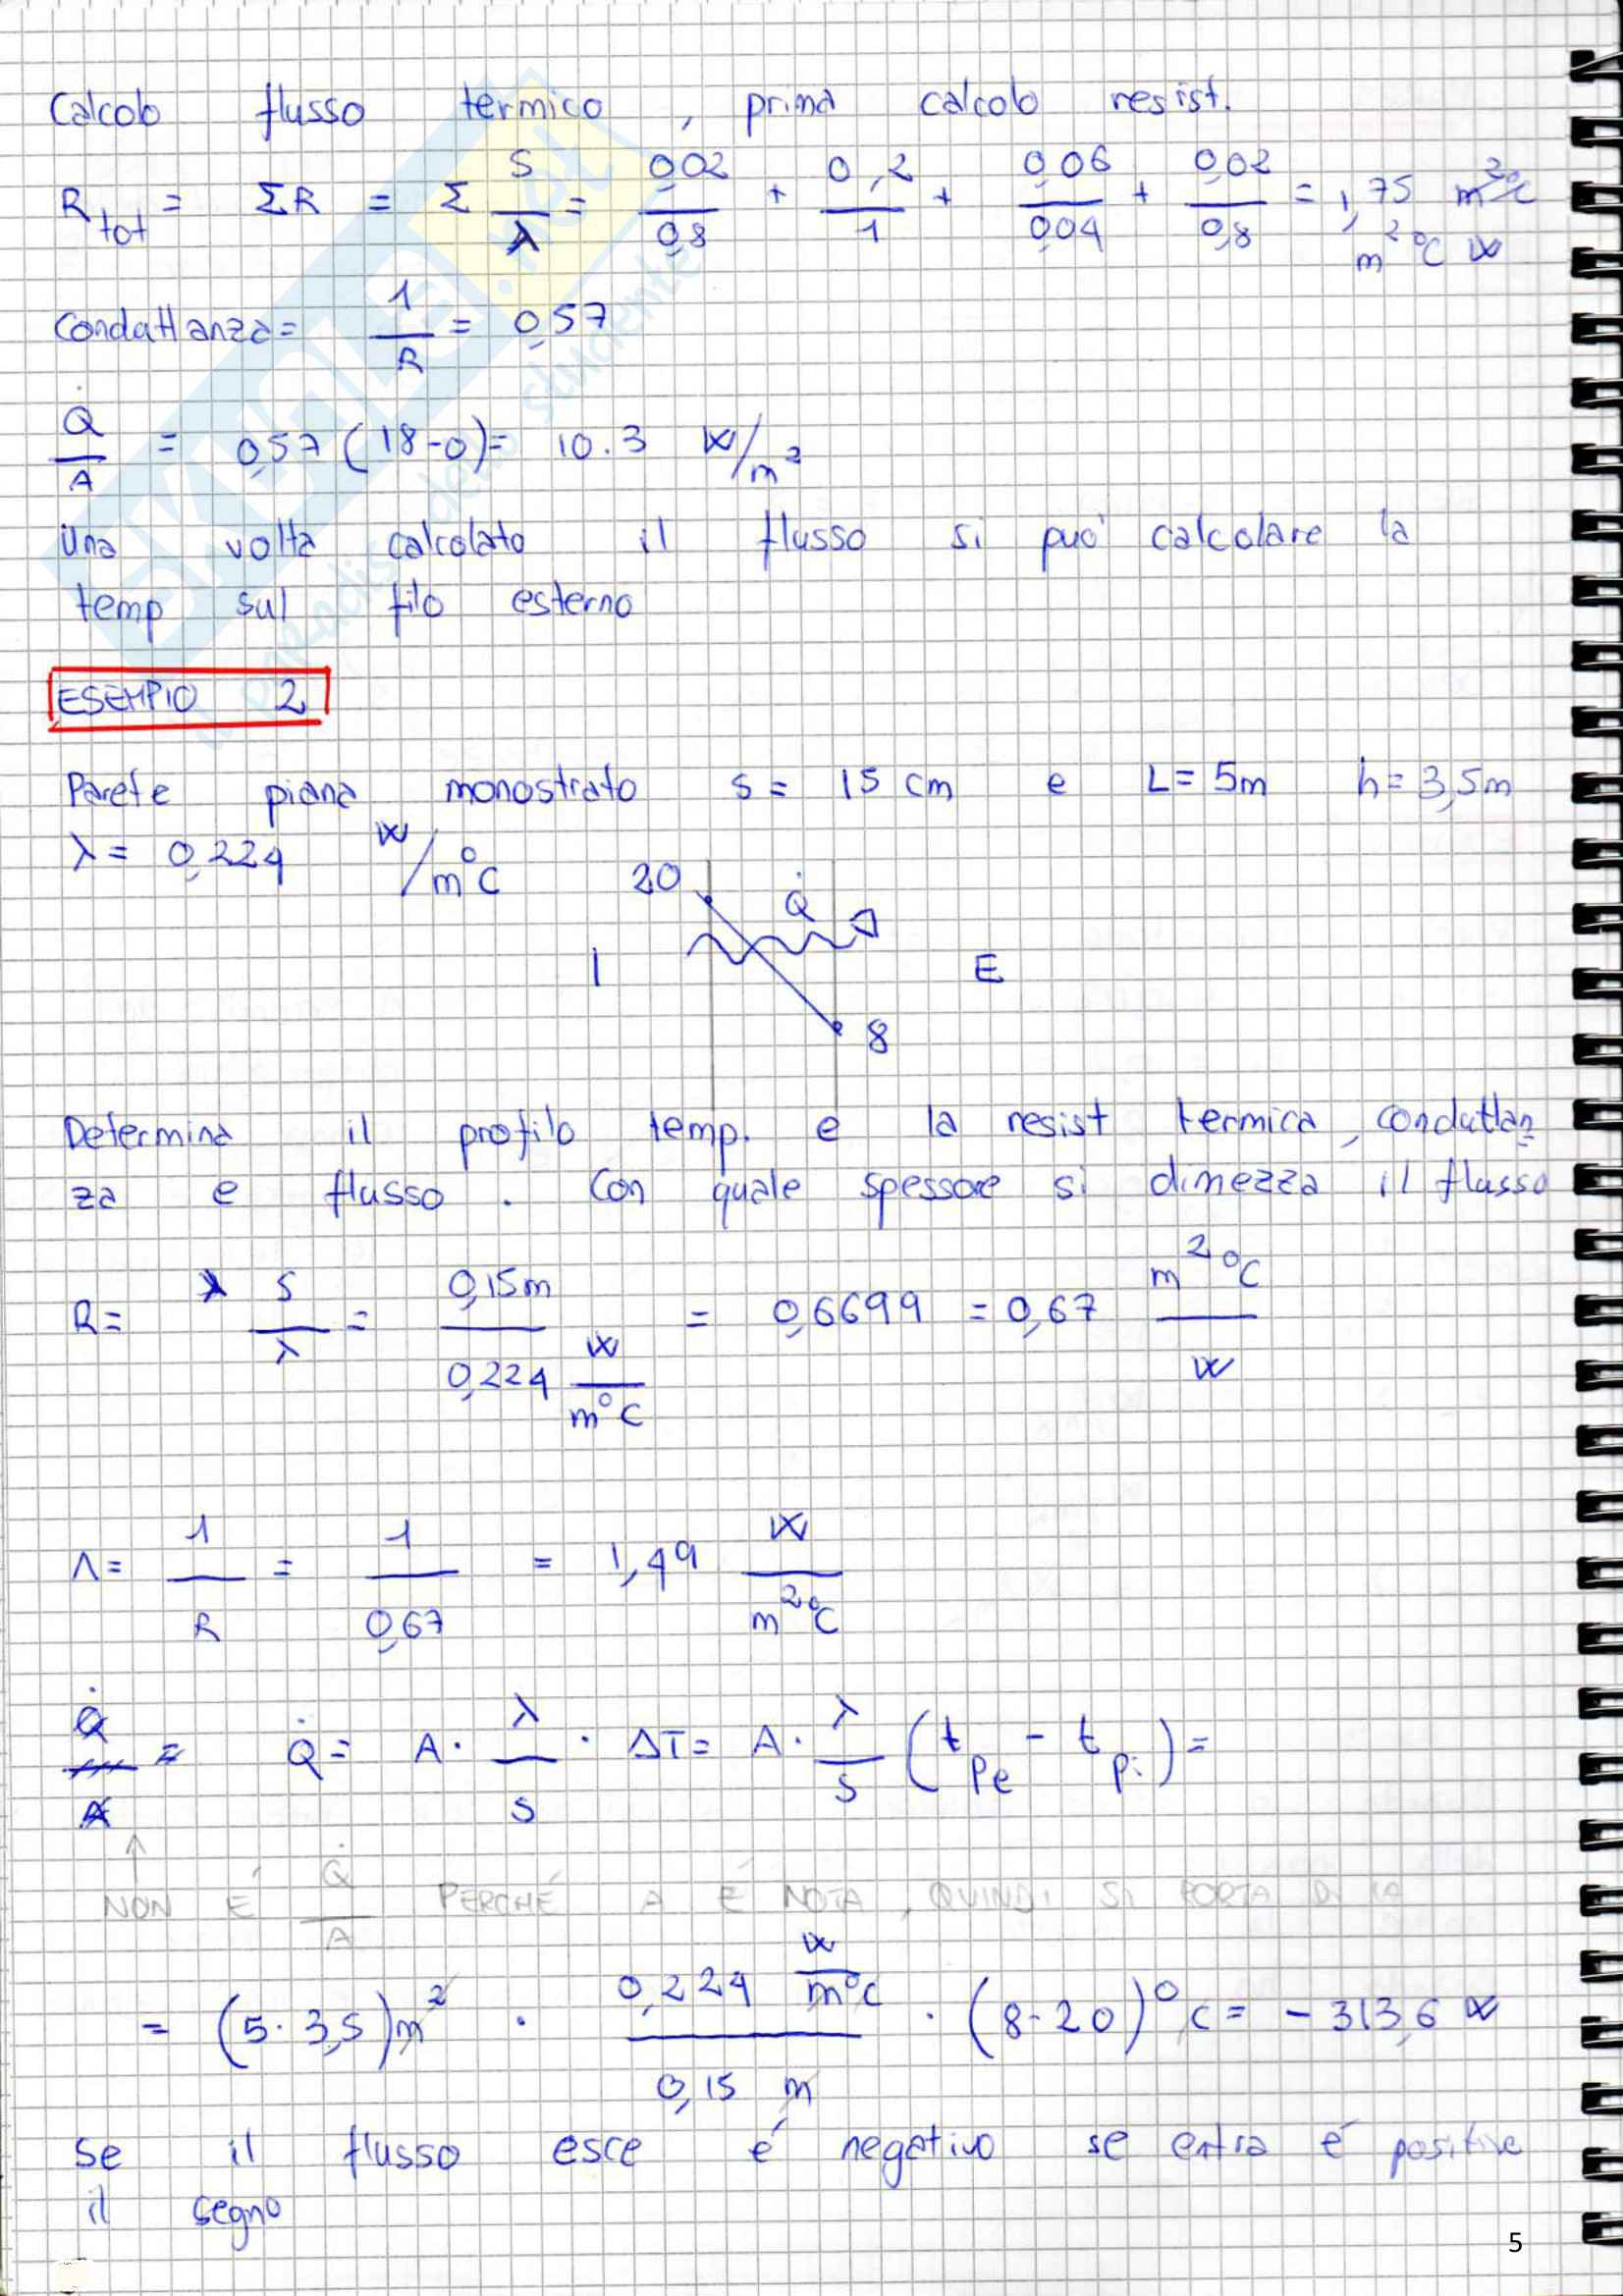 Calcolo flusso termico, prima calcolo resist.
R tot = ΣR = Σ s/λ = 0,02/0,8 + 0,2/1 + 0,06/0,04 + 0,02/0,8 = 1,75 m²°C
m²°C W
Conduttanza = 1/R = 0,57
Q̇/A = 0,57 (18-0) = 10.3 W/m²
Una volta calcolato il flusso si può calcolare la
temp sul filo esterno
ESEMPIO 2
Parete piana monostrato s = 15 cm e L = 5m h = 3,5m
λ = 0,224 W/m°C
20 Q̇
I E
8
Determina il profilo temp. e la resist termica, conduttan
za e flusso. Con quale spessore si dimezza il flusso
R = s/λ = 0,15m / 0,224 W/m°C = 0,6699 = 0,67 m²°C/W
Λ = 1/R = 1/0,67 = 1,49 W/m²°C
Q̇/A = Q̇ = A · λ/s · ΔT = A · λ/s (t pe - t pi) =
NON É Q̇/A PERCHÉ A É NOTA, QUINDI SI PORTA DI LA
= (5·3,5)m² · 0,224 W/m°C / 0,15 m · (8-20)°C = -313,6 W
Se il flusso esce é negativo se entra é positivo
il segno
5
SKUOLA.net